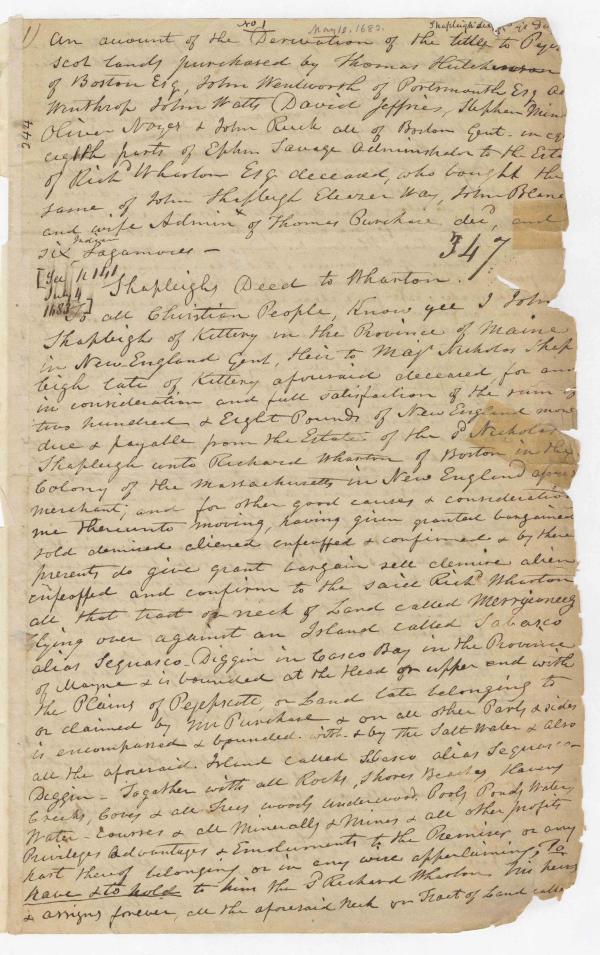 1)
No 1
May 12. 1683.
Shapleigh's
An account of the Derivation of the titles to Peje
scot lands purchased by Thomas Hutchenson
of Boston Esq, John Wentworth of Portsmouth Esq Ad
Winthrop John Watts David Jeffries, Stephen Min
Oliver Noyes & John Ruck all of Boston Gent. in eq
eighth parts of Ephm Savage Administrator to the Esta
of Richd Wharton Esq deceased, who bought the
same of John Shapleigh Eleazer Way, John Blane
and wife Adminx of Thomas Purchase decd, and
six Indian Sagamores —
244
347
[See p 141
July 4
1683]
Shapleighs Deed to Wharton.
To all Christian People, Know yee I John
Shapleigh of Kittery in the Province of Maine
in New England Gent, Heir to Majr Nicholas Shap
leigh late of Kittery aforesaid deceased for and
in consideration and full satisfaction of the sum of
two hundred & Eight Pounds of New England mony
due & payable from the Estate of the sd Nicholas
Shapleigh unto Richard Wharton of Boston in the
Colony of the Massachusetts in New England afores
merchant, and for other good causes & consideration
me thereunto moving, having given granted bargained
sold demised aliened enfeoffed & confirmed & by these
presents do give grant bargain sell demise alien
enfeoffed and confirm to the said Richd Wharton
all that tract or neck of Land called Merryconeeg
lying over against an Island called Sabasco
alias Sequasco-Diggin in Casco Bay in the Province
of Mayne & is bounded at the Head or upper end with
the Plains of Pejepscott, or Land late belonging to
or claimed by Mr Purchase & on all other Parts & sides
is encompassed & bounded with & by the Salt Water & also
all the aforesaid Island called Sbasco alias Sequasco-
Diggin - Together with all Rocks, Shores Beaches Havens
Creeks, Coves & all Trees woods underwood, Pools Ponds Waters
Water-Courses & all Mineralls & Mines & all other profits
Privileges Advantages & Emoluments to the Premises or any
part thereof belonging or in any wise appertaining, To
have & to hold to him the sd Richard Wharton his heirs
& assigns forever, all the aforesaid Neck or Tract of Land called